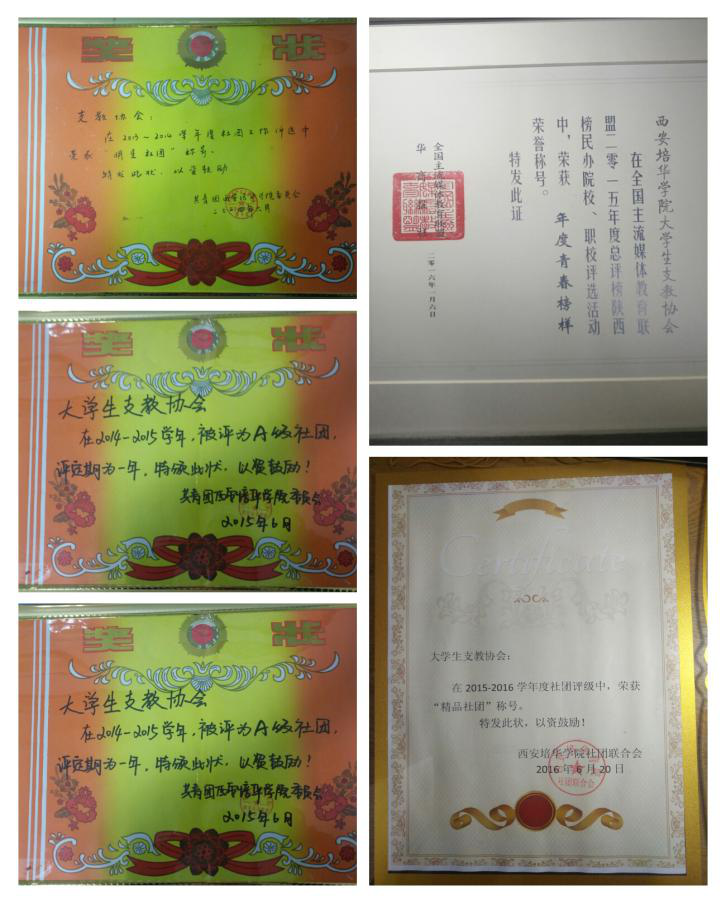 奖 状
支教协会：
在2013～2014学年度社团工作评选中
荣获“明星社团”称号。
特发此状，以资鼓励
二〇一四年六月
奖 状
大学生支教协会
在2014-2015学年，被评为A级社团，
评定期为一年，特颁此状，以资鼓励！
共青团西安培华学院委员会
2015年6月
奖 状
大学生支教协会
在2014-2015学年，被评为A级社团，
评定期为一年，特颁此状，以资鼓励！
共青团西安培华学院委员会
2015年6月
西安培华学院大学生支教协会
在全国主流媒体教育联
盟二零一五年度总评榜陕西
榜民办院校、职校评选活动
中，荣获 年度青春榜样
荣誉称号。
特发此证
全国主流媒体教育联盟
二零一六年一月六日
Certificate
大学生支教协会：
在 2015-2016 学年度社团评级中，荣获
“精品社团”称号。
特发此状，以资鼓励！
西安培华学院社团联合会
2016 年 6 月 20 日
社团联合会